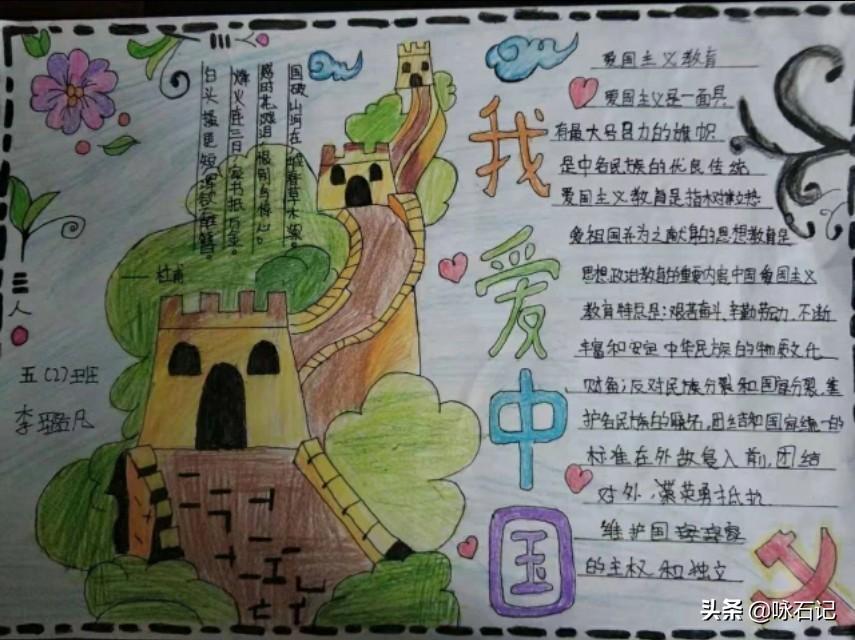 国破山河在城春草木深。
感时花溅泪恨别鸟惊心。
烽火连三月家书抵万金。
白头搔更短浑欲不胜簪。
——杜甫
五(2)班
李璐凡
我爱中国
爱国主义教育
爱国主义是一面具
有最大号召力的旗帜
是中名民族的优良传统
爱国主义教育是指树建立热
爱祖国并为之献身的思想教育是
思想政治教育的重要内容,中国爱国主义
教育特点是:艰苦奋斗、辛勤劳动、不断
丰富和安定中华民族的物质文化
财色;反对民族分裂和国家分裂,维
护各民族的联名,团结和国家统一的
标准在外敌侵入前,团结
对外,英勇抵抗
维护国
的主权和独立
头条 @咏石记